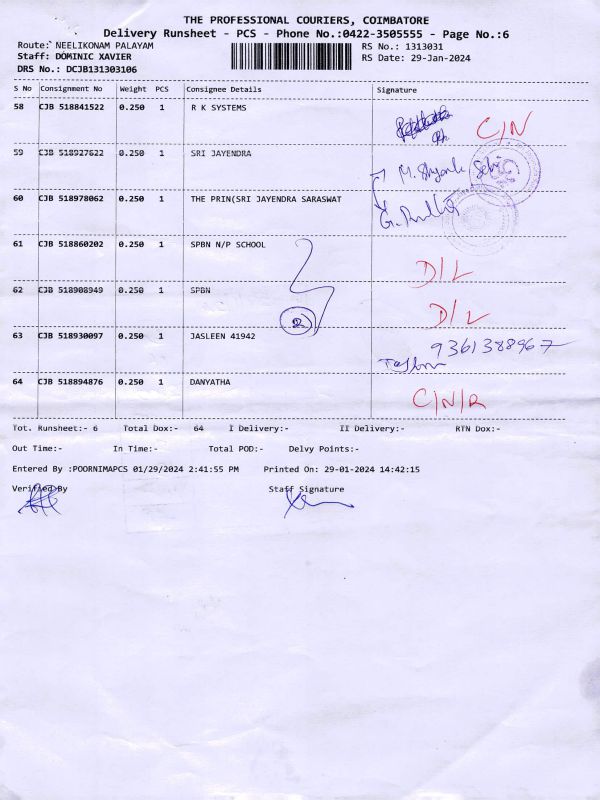 THE PROFESSIONAL COURIERS, COIMBATORE
Delivery Runsheet - PCS - Phone No.:0422-3505555 - Page No.:6
Route: NEELIKONAM PALAYAM
RS No.: 1313031
Staff: DOMINIC XAVIER
RS Date: 29-Jan-2024
DRS No.: DCJB131303106
S No Consignment No Weight PCS Consignee Details Signature
58 CJB 518841522 0.250 1 R K SYSTEMS
C/N
59 CJB 518927622 0.250 1 SRI JAYENDRA
M.
60 CJB 518978062 0.250 1 THE PRIN(SRI JAYENDRA SARASWAT
G.
61 CJB 518860202 0.250 1 SPBN N/P SCHOOL
D/L
62 CJB 518908949 0.250 1 SPBN
D/L
2
63 CJB 518930097 0.250 1 JASLEEN 41942
9361388967
64 CJB 518894876 0.250 1 DANYATHA
C/N/R
Tot. Runsheet:- 6 Total Dox:- 64 I Delivery:- II Delivery:- RTN Dox:-
Out Time:- In Time:- Total POD:- Delvy Points:-
Entered By :POORNIMAPCS 01/29/2024 2:41:55 PM Printed On: 29-01-2024 14:42:15
Verified By Staff Signature